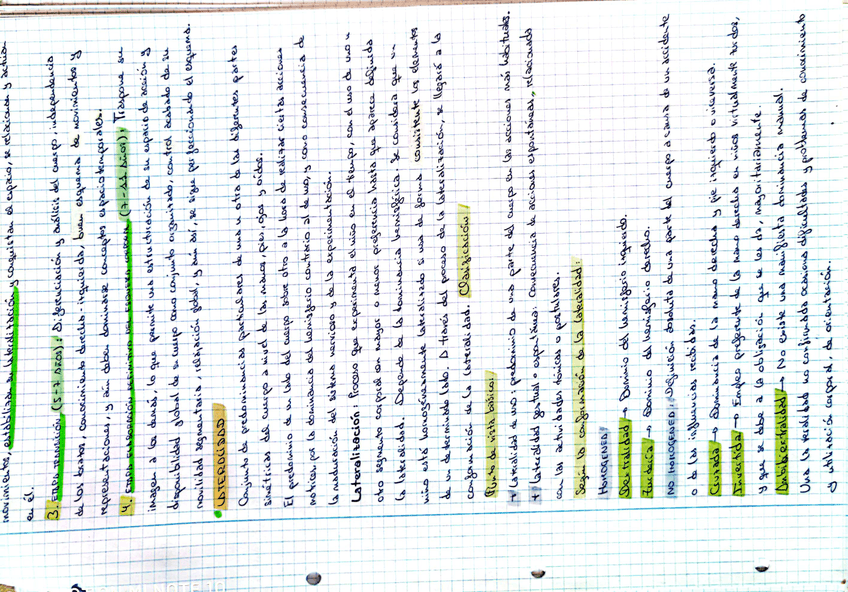 movimientos, estabilizar su lateralización y conquistar el espacio, se relaciona y actúa
en él.
3. ETAPA TRANSICIÓN (5-7 AÑOS): Diferenciación y análisis del cuerpo, independencia
de los brazos, conocimiento derecha-izquierda, buen esquema de movimientos y
representaciones, y aún deben dominarse conceptos espaciotemporales.
4. ETAPA ELABORACIÓN DEFINITIVA DEL ESQUEMA CORPORAL (7-11 AÑOS): Traspone su
imagen a los demás, lo que permite una estructuración de su espacio de acción y
disponibilidad global de su cuerpo como conjunto organizado, control acabado de su
movilidad segmentaria, relajación global, y aún así, se sigue perfeccionando el esquema.
• LATERALIDAD
Conjunto de predominancias particulares de una u otra de las diferentes partes
simétricas del cuerpo a nivel de las manos, pies, ojos y oídos.
El predominio de un lado del cuerpo sobre otro a la hora de realizar ciertas acciones
motrices, por la dominancia del hemisferio contrario al de uso, y como consecuencia de
la maduración del sistema nervioso y de la experimentación.
Lateralización: Proceso que experimenta el niño en el tiempo, con el uso de uno u
otro segmento corporal en mayor o menor preferencia hasta que aparece definida
la lateralidad. Depende de la dominancia hemisférica. Se considera que un
niño está homogéneamente lateralizado si usa de forma consistente los elementos
de un determinado lado. A través del proceso de la lateralización, se llegará a la
conformación de la lateralidad. Clasificación:
Punto de vista básico:
+ Lateralidad de uso: predominio de una parte del cuerpo en las acciones más habituales.
+ Lateralidad gestual o espontánea: consecuencia de acciones espontáneas, relacionada
con las actividades tónicas o posturales.
Según la conformación de la lateralidad:
HOMOGÉNEA:
Dextralidad → Dominio del hemisferio izquierdo.
Zurdería → Dominio del hemisferio derecho.
NO HOMOGÉNEA: Definición absoluta de una parte del cuerpo a causa de un accidente
o de las influencias recibidas.
Cruzada → Dominancia de la mano derecha y pie izquierdo o viceversa.
Invertida → Empleo preferente de la mano derecha en niños virtualmente zurdos,
y que se debe a la obligación que se les da, mayoritariamente.
Ambidextralidad → No existe una manifiesta dominancia manual.
Una lateralidad no conformada ocasiona dificultades y problemas de conocimiento
y utilización corporal, de orientación.